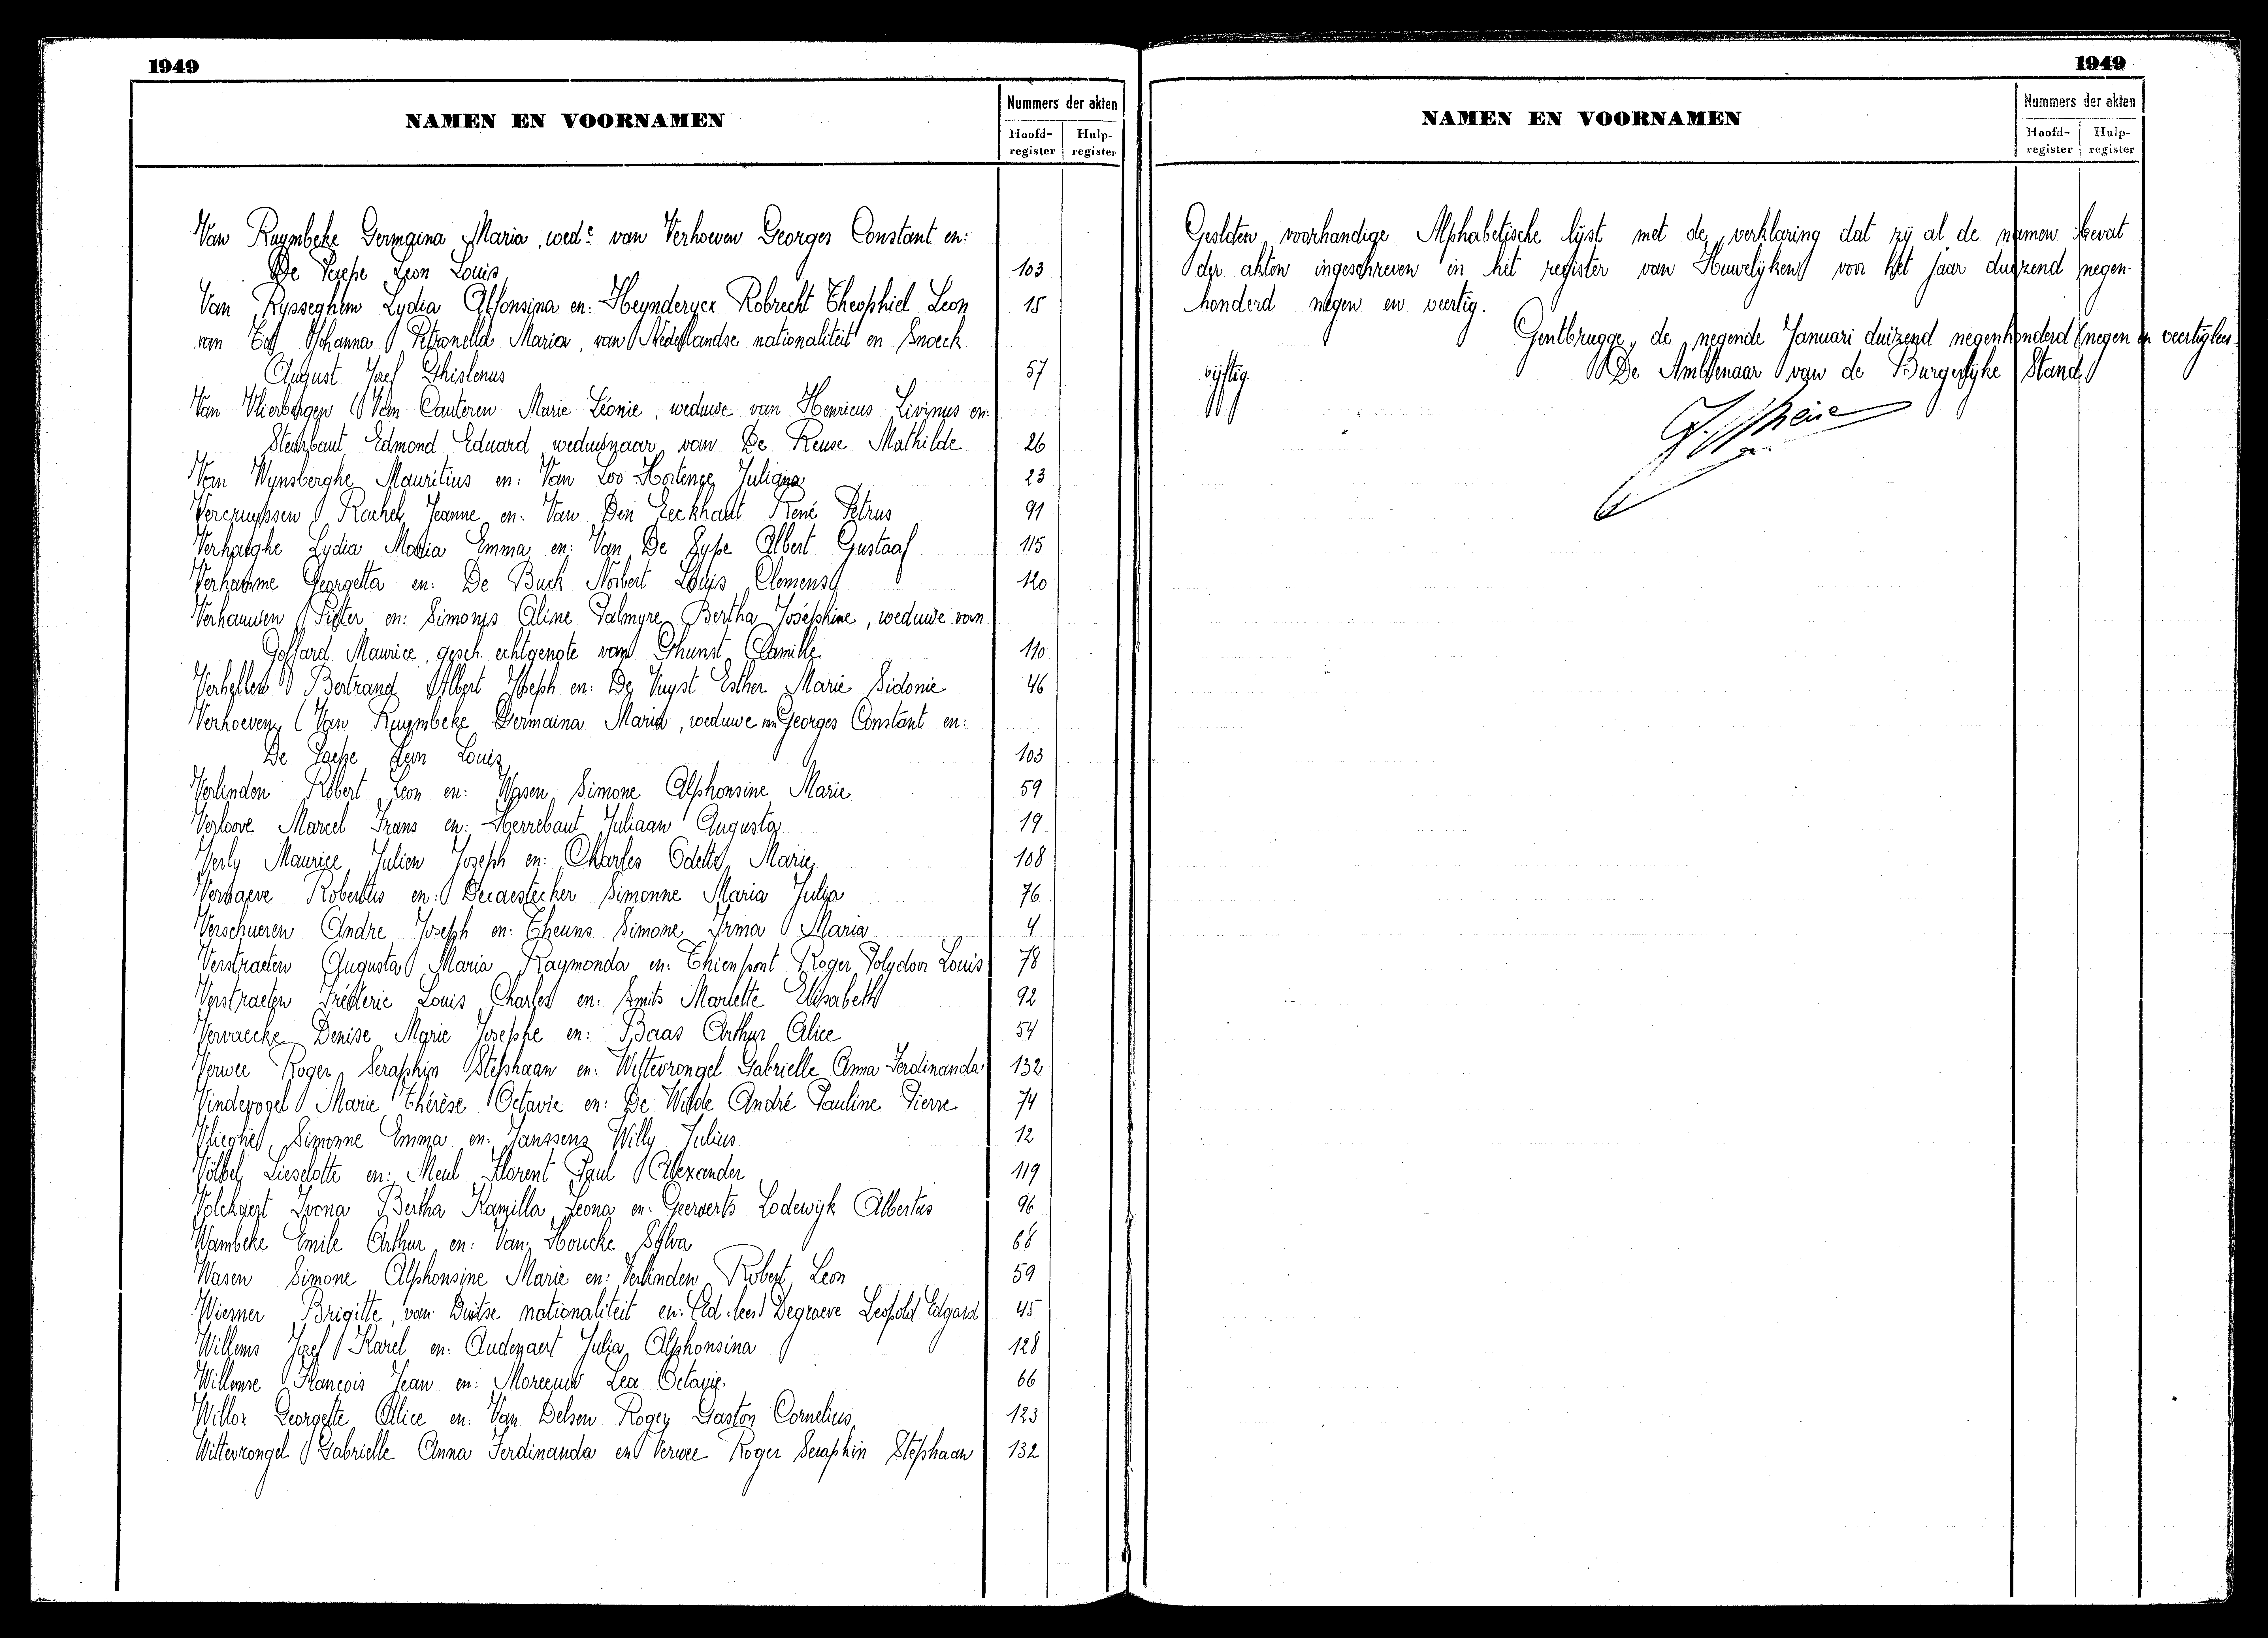 1949
NAMEN EN VOORNAMEN
Nummers der akten
Hoofd-register
Hulp-register
Van Ruymbeke Germaina Maria, wede van Verhoeven Georges Constant en:
De Paepe Leon Louis 103
Van Rysseghem Lydia Alfonsina en: Heynderycx Robrecht Theophiel Leon 15
van Johanna Petronella Maria, van Nederlandse nationaliteit en Snoeck
August Jozef Ghislenus 57
Van Vlierbergen (Van Cauteren Marie Léonie, weduwe van Henricus Livinus en:
Steurbaut Edmond Eduard weduwnaar van De Reuse Mathilde 26
Van Wynsberghe Mauritius en: Van Loo Hortence Juliana 23
Vercruyssen Rachel Jeanne en: Van Den Eeckhaut René Petrus 91
Verhaeghe Lydia Maria Emma en: Van De Sype Albert Gustaaf 115
Verhamme Georgetta en: De Buck Norbert Louis Clemens 120
Verhauwen Pieter en: Simonis Aline Palmyre Bertha Joséphine, weduwe van
Goffard Maurice, gesch. echtgenote van Ghunst Camille 110
Verhellen Bertrand Albert Joseph en: De Vuyst Esther Marie Sidonie 46
Verhoeven (Van Ruymbeke Germaina Maria, weduwe van Georges Constant en:
De Paepe Leon Louis 103
Verlinden Robert Leon en: Wasen Simone Alphonsine Marie 59
Verloove Marcel Frans en: Herrebaut Juliaan Augusta 19
Verly Maurice Julien Jozeph en: Charles Odette Marie 108
Vernaeve Robertus en: Decaestecker Simonne Maria Julia 76
Verschueren Andre Joseph en: Theuns Simone Irma Maria 4
Verstraeten Augusta Maria Raymonda en: Thienpont Roger Polydoor Louis 78
Verstraeten Fréderic Louis Charles en: Smits Mariette Elisabeth 92
Vervaecke Denise Marie Josephe en: Baas Arthur Alice 54
Verwee Roger Seraphin Stephaan en: Wittevrongel Gabrielle Anna Ferdinanda 132
Vindevogel Marie Thérèse Octavie en: De Wilde André Pauline Pierre 74
Vlieghe Simonne Emma en: Janssens Willy Julius 12
Völbel Lieselotte en: Meul Florent Paul Alexander 119
Volckaert Ivona Bertha Kamilla Leona en: Geerverts Lodewijk Albertus 96
Wambeke Emile Arthur en: Van Houcke Sylva 68
Wasen Simone Alphonsine Marie en: Verlinden Robert Leon 59
Wiemer Brigitte, van Duitse nationaliteit en: Degraeve Leopold Edgard 45
Willems Jozef Karel en: Audenaert Julia Alphonsina 128
Willemse François Jean en: Lea Octavie 66
Willox Georgette Alice en: Van Delsen Roger Gaston Cornelius 123
Wittevrongel Gabrielle Anna Ferdinanda en Verwee Roger Seraphin Stephaan 132
1949
NAMEN EN VOORNAMEN
Nummers der akten
Hoofd-register
Hulp-register
Gesloten voorhandige Alphabetische lijst met de verklaring dat zij al de namen bevat
der akten ingeschreven in het register van Huwelijken voor het jaar duizend negen-
honderd negen en veertig.
Gentbrugge, de negende Januari duizend negenhonderd (negen en veertig
vijftig. De Ambtenaar van de Burgerlijke Stand,